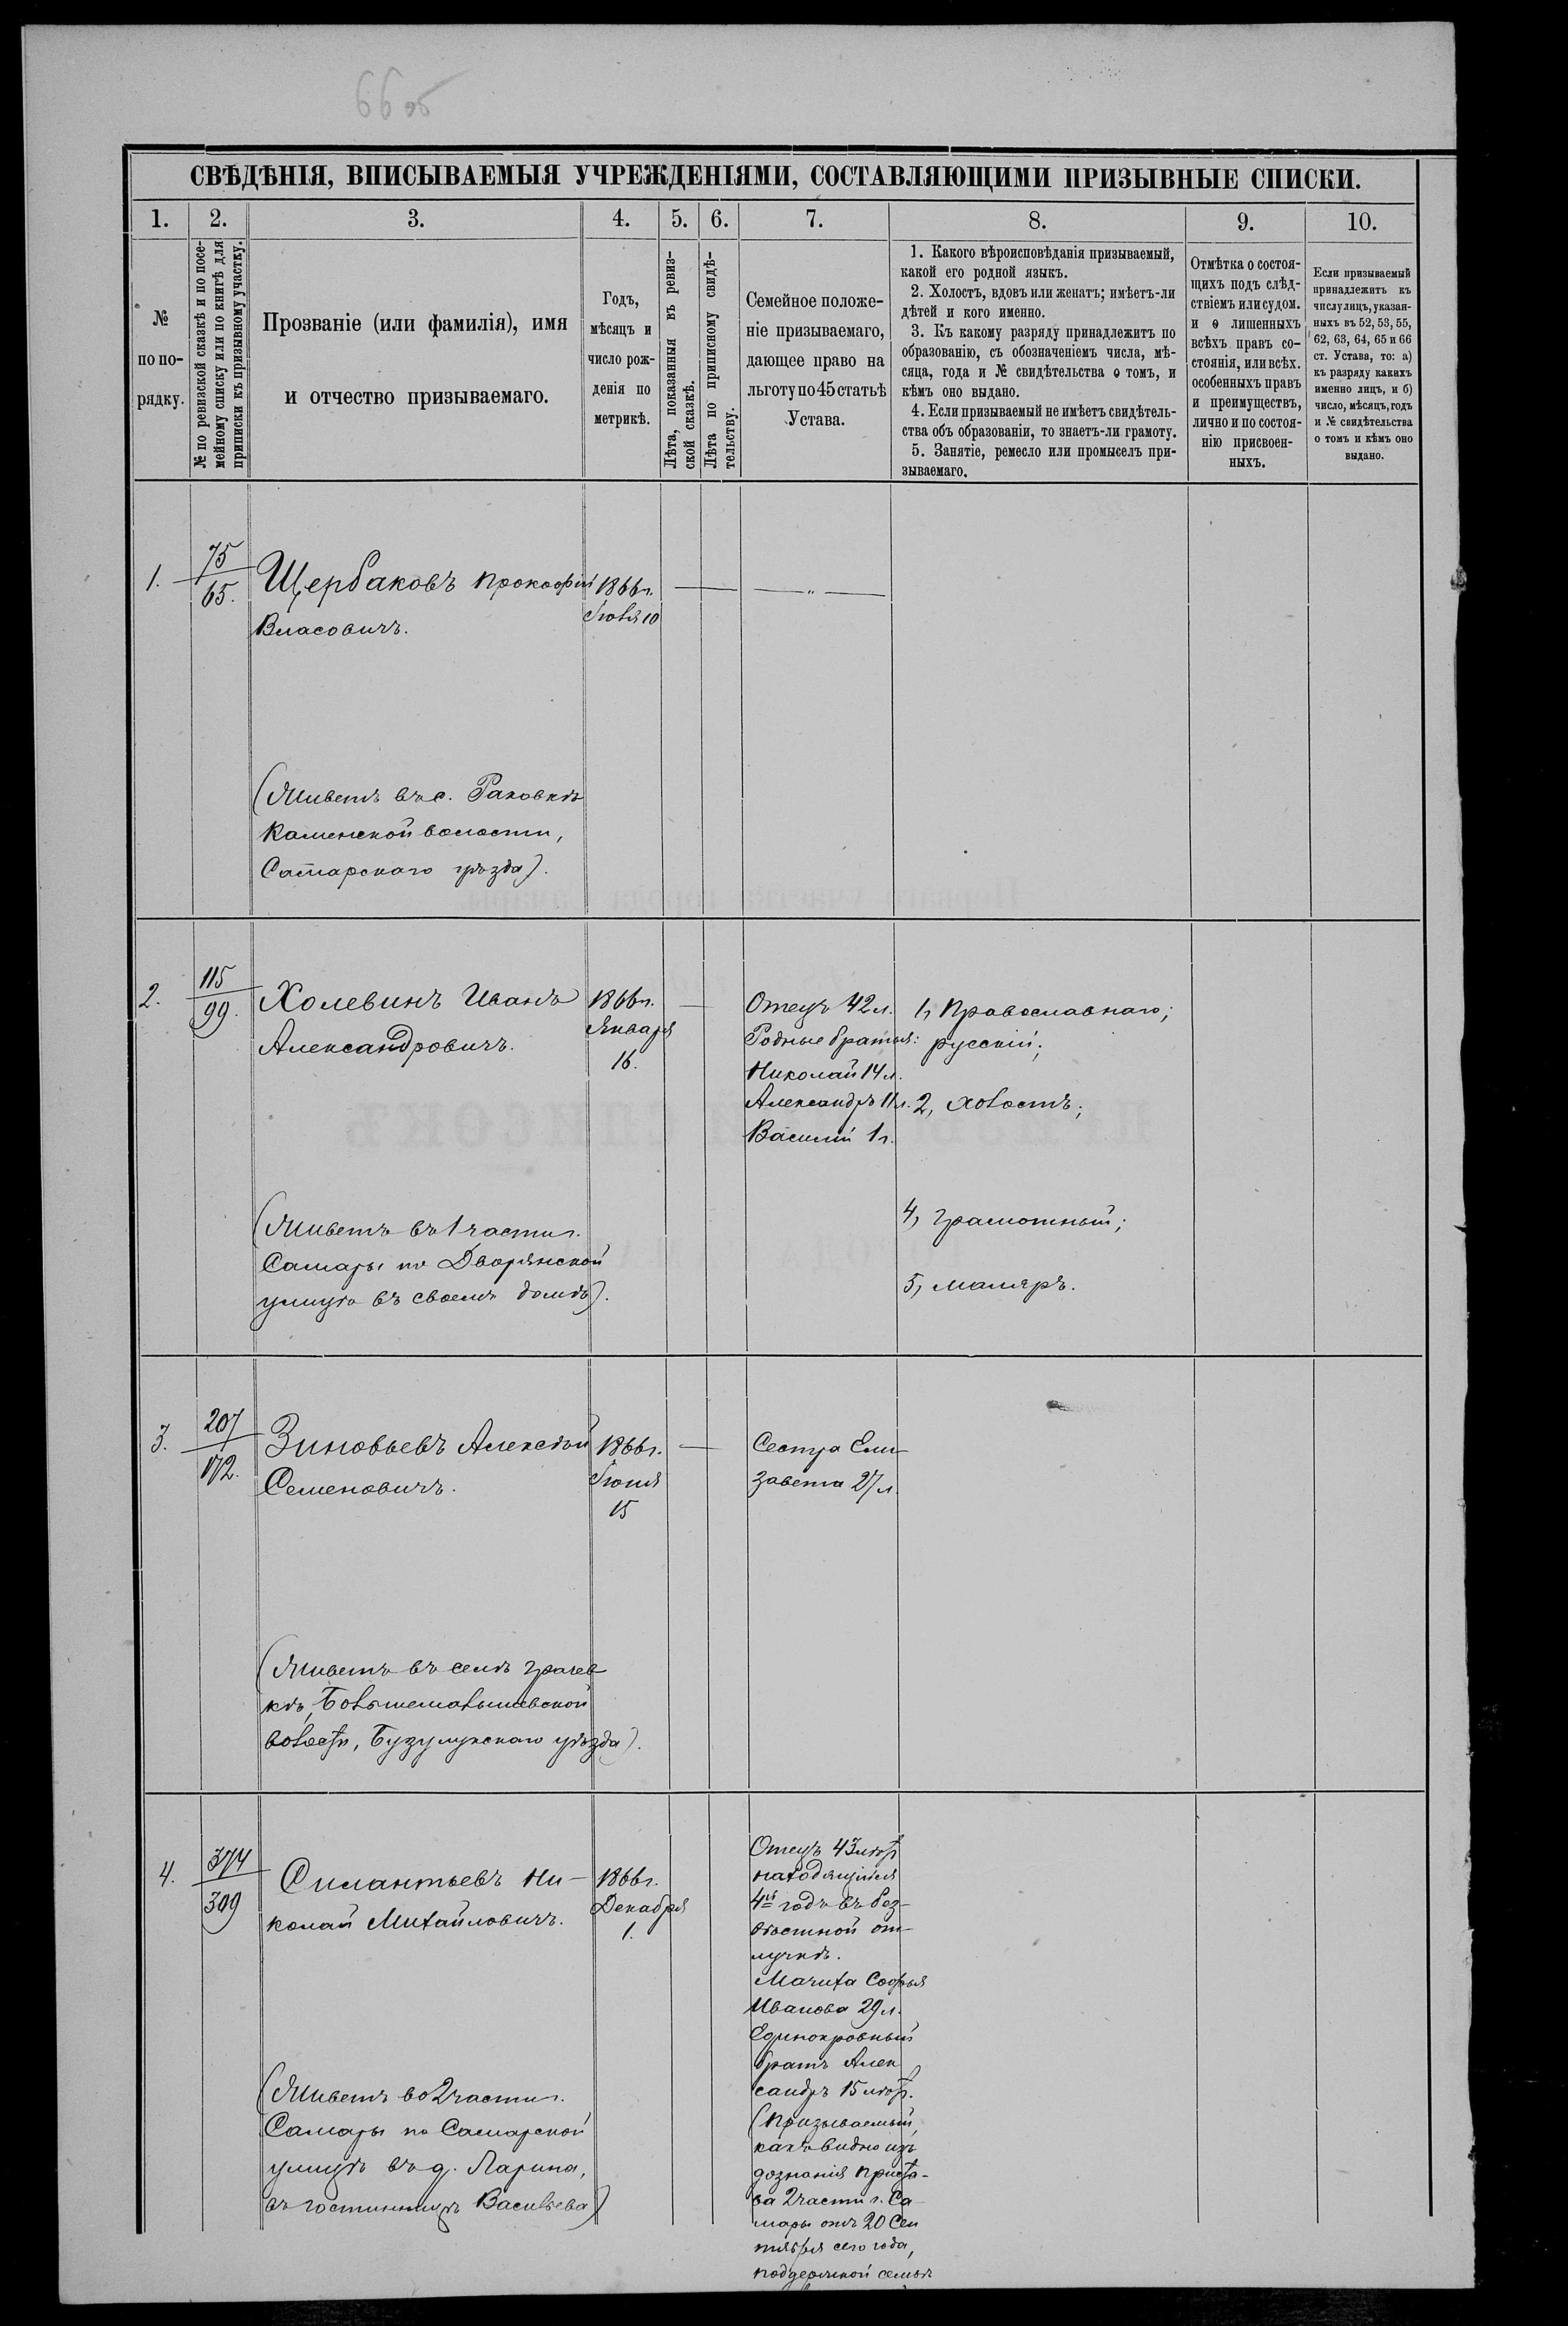 66 об
СВѢДѢНІЯ, ВПИСЫВАЕМЫЯ УЧРЕЖДЕНІЯМИ, СОСТАВЛЯЮЩИМИ ПРИЗЫВНЫЕ СПИСКИ.
1. 2. 3. 4. 5. 6. 7. 8. 9. 10.
№
по по-
рядку.
№ по ревизской сказкѣ и по посе-
мейному списку или по книгѣ для
приписки къ призывному участку.
Прозваніе (или фамилія), имя
и отчество призываемаго.
Годъ,
мѣсяцъ и
число рож-
денія по
метрикѣ.
Лѣта, показанныя въ ревиз-
ской сказкѣ.
Лѣта по приписному свидѣ-
тельству.
Семейное положе-
ніе призываемаго,
дающее право на
льготу по 45 статьѣ
Устава.
1. Какого вѣроисповѣданія призываемый,
какой его родной языкъ.
2. Холостъ, вдовъ или женатъ; имѣетъ-ли
дѣтей и кого именно.
3. Къ какому разряду принадлежитъ по
образованію, съ обозначеніемъ числа, мѣ-
сяца, года и № свидѣтельства о томъ, и
кѣмъ оно выдано.
4. Если призываемый не имѣетъ свидѣтель-
ства объ образованіи, то знаетъ-ли грамоту.
5. Занятіе, ремесло или промыселъ при-
зываемаго.
Отмѣтка о состоя-
щихъ подъ слѣд-
ствіемъ или судом.
и о лишенныхъ
всѣхъ правъ со-
стоянія, или всѣх.
особенныхъ правъ
и преимуществъ,
лично и по состоя-
нію присвоен-
ныхъ.
Если призываемый
принадлежитъ къ
числу лицъ, указан-
ныхъ въ 52, 53, 55,
62, 63, 64, 65 и 66
ст. Устава, то: а)
къ разряду какихъ
именно лицъ, и б)
число, мѣсяцъ, годъ
и № свидѣтельства
о томъ и кѣмъ оно
выдано.
1.
75
65.
Щербаковъ Прокофій
Власовичъ.
1866 г.
Іюля 10
— „ —
(Живетъ въ с. Раковкѣ
Каменской волости,
Самарскаго уѣзда).
2.
115
99.
Холевинъ Иванъ
Александровичъ.
1866 г.
Января
16.
Отецъ 42 л.
Родные братья:
Николай 14 л.
Александръ 11 л.
Василій 1 г.
1, Православнаго;
русскій;
2, холостъ;
4, грамотный;
5, маляръ.
(Живетъ въ 1 части г.
Самары по Дворянской
улицѣ въ своемъ домѣ).
3.
207
172.
Зиновьевъ Алексѣй
Семеновичъ.
1866 г.
Іюня
15
Сестра Ели-
завета 27 л.
(Живетъ въ селѣ Грачев-
кѣ,
волости, Бузулукскаго уѣзда).
4.
374
309
Силантьевъ Ни-
колай Михайловичъ.
1866 г.
Декабря
1.
Отецъ 43 лѣтъ
находящійся
4й годъ въ без-
вѣстной от-
лучкѣ.
Мачиха Софья
Иванова 29 л.
Единокровный
братъ Алек
сандръ 15 лѣтъ.
(Призываемый,
какъ видно изъ
дознанія Приста-
ва 2 части г. Са
мары отъ 20 Сен
тября сего года,
поддержкой семьѣ
(Живетъ во 2 части г.
Самары по Самарской
улицѣ въ д. Ларина,
въ гостинницѣ Васильева)